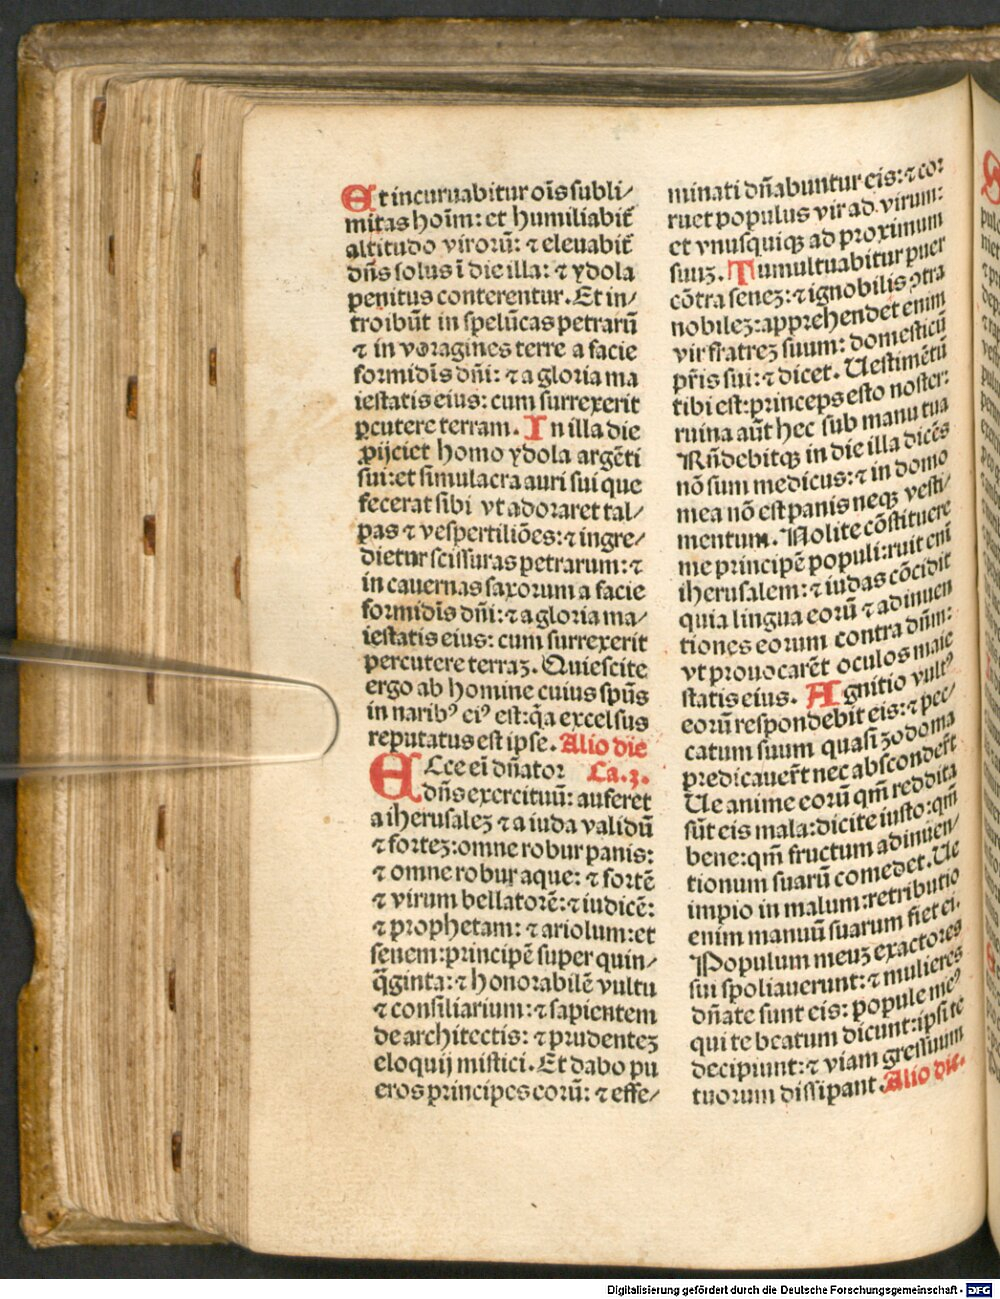 Et incuruabitur oīs subli⸗
mitas hoīm: et humiliabit̄
altitudo virorū: ⁊ eleuabit̄
dn̄s solus ī die illa: ⁊ ydola
penitus conterentur. Et in⸗
troibūt in spelūcas petrarū
⁊ in voragines terre a facie
formidīs dn̄i: ⁊ a gloria ma
iestatis eius: cum surrexerit
ꝑcutere terram. In illa die
ꝓijciet homo ydola argēti
sui: et simulacra auri sui que
fecerat sibi vt adoraret tal⸗
pas ⁊ vespertiliōes: ⁊ ingre⸗
dietur scissuras petrarum: ⁊
in cauernas saxorum a facie
formidīs dn̄i: ⁊ a gloria ma⸗
iestatis eius: cum surrexerit
percutere terraꝫ. Quiescite
ergo ab homine cuius spūs
in naribꝰ eiꝰ est: q̄a excelsus
reputatus est ipse. Alio die
ECce eī dn̄ator Ca. 3.
dn̄s exercituū: auferet
a iherusaleꝫ ⁊ a iuda validū
⁊ forteꝫ: omne robur panis:
⁊ omne robur aque: ⁊ fortē
⁊ virum bellatorē: ⁊ iudicē:
⁊ prophetam: ⁊ ariolum: et
senem: principē super quin⸗
q̄ginta: ⁊ honorabilē vultu
⁊ consiliarium: ⁊ sapientem
de architectis: ⁊ prudenteꝫ
eloquij mistici. Et dabo pu
eros principes eorū: ⁊ effe⸗
minati dn̄abuntur eis: ⁊ cor
ruet populus vir ad virum:
et vnusquisqꝫ ad proximum
suuꝫ. Tumultuabitur puer
cōtra seneꝫ: ⁊ ignobilis ꝯtra
nobileꝫ: apprehendet enim
vir fratreꝫ suum: domesticū
pr̄is sui: ⁊ dicet. Uestimētū
tibi est: princeps esto noster:
ruina aūt hec sub manu tua
Rn̄debitqꝫ in die illa dicēs
nō sum medicus: ⁊ in domo
mea nō est panis neqꝫ vesti⸗
mentum. Nolite cōstituere
me principē populi: ruit eni
iherusalem: ⁊ iudas cōcidit
quia lingua eorū ⁊ adinuen
tiones eorum contra dn̄m:
vt prouocarēt oculos maie
statis eius. Agnitio vultꝰ
eorū respondebit eis: ⁊ pec⸗
catum suum quasi zodoma
predicauer̄t nec absconder̄t
Ue anime eorū qm̄ reddita
sūt eis mala: dicite iusto: qm̄
bene: qm̄ fructum adinuen⸗
tionum suarū comedet. Ue
impio in malum: retributio
enim manuū suarum fiet ei.
Populum meuꝫ exactores
sui spoliauerunt: ⁊ mulieres
dn̄ate sunt eis: popule meꝰ
qui te beatum dicunt: ipsi te
decipiunt: ⁊ viam gressuum
tuorum dissipant. Alio die.
Digitalisierung gefördert durch die Deutsche Forschungsgemeinschaft - DFG